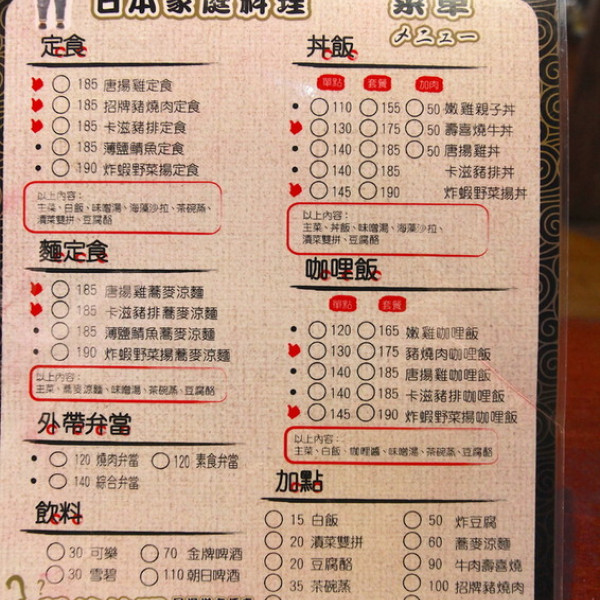 日本家庭料理
菜單
メニュー
定食
185 唐揚雞定食
185 招牌豬燒肉定食
185 卡滋豬排定食
185 薄鹽鯖魚定食
190 炸蝦野菜揚定食
以上內容：
主菜、白飯、味噌湯、海藻沙拉、茶碗蒸、
漬菜雙拼、豆腐酪
麵定食
185 唐揚雞蕎麥涼麵
185 卡滋豬排蕎麥涼麵
185 薄鹽鯖魚蕎麥涼麵
190 炸蝦野菜揚蕎麥涼麵
以上內容：
主菜、蕎麥涼麵、味噌湯、茶碗蒸、豆腐酪
外帶弁當
120 燒肉弁當 120 素食弁當
140 綜合弁當
飲料
30 可樂 70 金牌啤酒
30 雪碧 110 朝日啤酒
丼飯
單點 套餐 加肉
110 155 50 嫩雞親子丼
130 175 50 壽喜燒牛丼
140 185 50 唐揚雞丼
140 185 卡滋豬排丼
145 190 炸蝦野菜揚丼
以上內容：
主菜、丼飯、味噌湯、海藻沙拉、
漬菜雙拼、豆腐酪
咖哩飯
單點 套餐
120 165 嫩雞咖哩飯
130 175 豬燒肉咖哩飯
140 185 唐揚雞咖哩飯
140 185 卡滋豬排咖哩飯
145 190 炸蝦野菜揚咖哩飯
以上內容：
主菜、白飯、咖哩醬、味噌湯、茶碗蒸、豆腐酪
加點
15 白飯 50 炸豆腐
20 漬菜雙拼 60 蕎麥涼麵
20 豆腐酪 90 牛肉壽喜燒
35 茶碗蒸 100 招牌豬燒肉